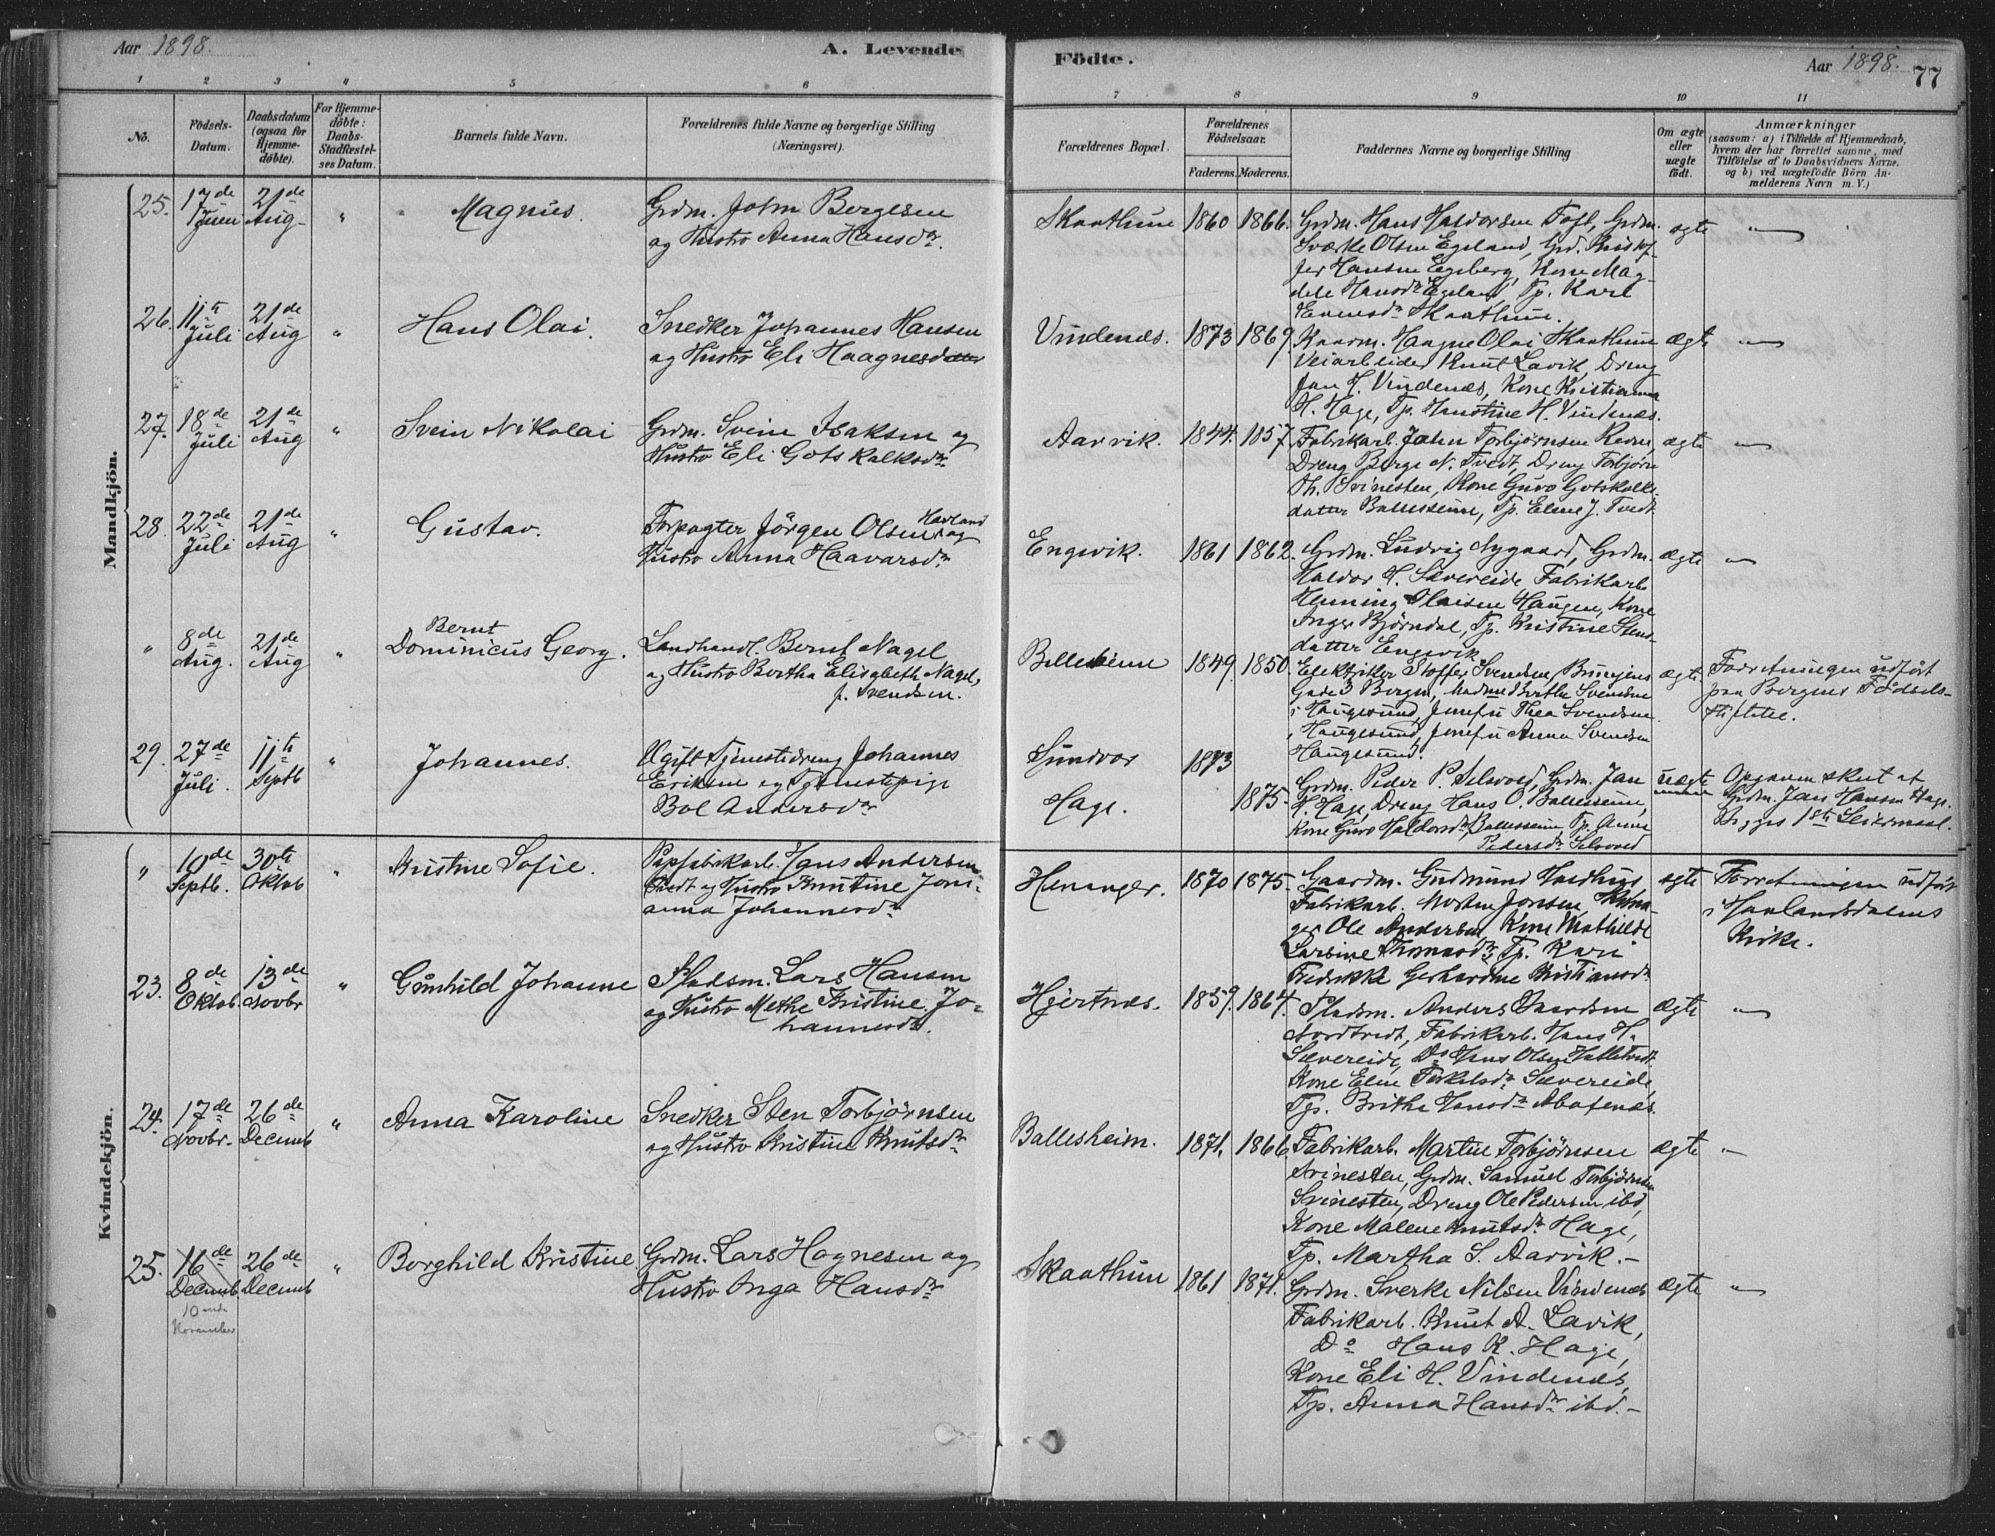 Aar 1898.
A. Levende
Födte.
Aar 1898.
77
1 2 3 4 5 6
7 8 9 10 11
No.
Födsels-
Datum.
Daabsdatum
(ogsaa for
Hjemme-
döbte).
For Hjemme-
döbte:
Daabs-
Stadfæstel-
ses Datum.
Barnets fulde Navn.
Forældrenes fulde Navne og borgerlige Stilling
(Næringsvei).
Forældrenes Bopæl.
Forældrenes
Födselsaar.
Faderens. Moderens.
Faddernes Navne og borgerlige Stilling
Om ægte
eller
uægte
födt.
Anmærkninger
(saasom: a) i Tilfælde af Hjemmedaab,
hvem der har forrettet samme, med
Tilföielse af to Daabsvidners Navne,
og b) ved uægtefödte Börn An-
melderens Navn m. V.)
Mandkjön.
25. 17de Juni
21de Aug
"
Magnus.
Grdm. John Bergesen
og Hustro Anna Hansdr.
Skaathun 1860 1866.
Grdm. Hans Haldorsen Toft, Grdm.
Sværke Olsen Egeland, Grd. Kristof-
fer Hansen Egeberg, Kone Mag-
dele Hansdr Egeland, Tp. Karl
Skaathun.
ægte
"
26. 11te Juli
21de Aug
"
Hans Olai.
Snedker Johannes Hansen
og Hustro Eli Haagnesdatter
Vindenæs. 1873 1869.
Kaarm. Haagne Olai Skaathun
Veiarbeider Knut Lavik, Dreng
Jan H. Vindenæs, Kone Kristianna
H. Hage, Tp. Hanstine H. Vindenæs.
ægte
"
27. 18de Juli
21de Aug
"
Svein Nikolai
Grdm. Svein Isaksen og
Hustro Eli Gotskalksdr.
Aarvik. 1844. 1857.
Fabrikarb. John Torbjørnsen Revne,
Dreng Berge N. Tvedt, Dreng Torbjørn
Th. Svinesten, Kone Guro Gotskalks-
datter Ballesheim, Tp. Eline J. Tvedt.
ægte
"
28. 22de Juli
21de Aug
"
Gustav.
Forpagter Jörgen Olsen Havland og
Hustro Anna Haavarsdr
Engevik. 1861 1862.
Grdm. Ludvig Nygaard, Grdm.
Haldor H. Sævereide Fabrikarb
Henning Olaisen Haugen, Kone
Inger Bjørndal, Tp. Kristine Stens-
datter Engevik
ægte
"
" 8de Aug.
21de Aug
"
Bernt
Dominicus Georg.
Landhandl. Bernt Nagel
og Hustro Bertha Elisabeth Nagel,
f. Svendsen.
1849. 1850.
Elektriker Stoffer Svendsen,
Gade 3 Bergen, Madme Berthe Svendsen
i Haugesund, Jomfru Thea Svendsen
i Haugesund, Jomfru Anna Svendsen
Haugesund.
ægte
Forretningen udført
paa Bergens Fødsels-
stiftelse.
29. 27de Juli.
11te Septb
"
Johannes.
Ugift Tjenestedreng Johannes
Eriksen og Tjenestepige
Bol Andersdr
Sundvor
Hage.
1873
1875.
Grdm. Peder P. Selsvold, Grdm. Jan
H. Hage, Dreng Hans O. Ballesheim,
Kone Guro Haldorsdr Ballesheim, Tp. Anne
Pedersdr Selsvold
uægte
Opgaven skeet af
Grdm. Jan Hansen Hage.
Begges 1ste Leiermaal.
Kvindekjön.
" 10de Septb.
30te Oktob
"
Kristine Sofie.
Papfabrikarb. Hans Andersen
Tvedt og Hustro Knutine Jons-
anna Johannesdr
Henanger. 1870 1875.
Gaardm. Gudmund
Fabrikarb. Morten Jonsen,
ger Ole Andersen, Kone Mathilde
Larsine Thomasdr, Tp. Kari
Fredrikke Gerhardine Kristiansdr
ægte
Forretningen udført
i Haalandsdalens
Kirke.
23. 8de Oktob.
13de Novbr
"
Gunhild Johanne
Pladsm. Lars Hansen
og Hustro Methe Kristine Jo-
hannesdr.
Hjertnæs. 1859. 1864.
Pladsm. Anders Baardsen
Nordtvedt, Fabrikarb. Hans H.
Sævereide, Do Hans Olsen
Kone Eline Torkelsdr Sævereide,
Tp. Brithe Hansdr
ægte
"
24. 17de Novbr.
26de Decemb
"
Anna Karoline
Snedker Sten Torbjørnsen
og Hustro Kristine Knutsdr
Ballesheim. 1871. 1866.
Fabrikarb. Martin Torbjørnsen
Svinesten, Grdm. Samuel Torbjørnsen
Svinesten, Dreng Ole Pedersen ibd,
Kone Malene Knutsdr Hage,
Tp. Martha S. Aarvik.-
ægte
"
25. 16de Decemb
10nde November
26de Decemb
"
Borghild Kristine
Grdm. Lars Hagnesen og
Hustro Inga Hansdr
Skaathun 1861 1871.
Grdm. Sverke Nilsen Vindenæs
Fabrikarb. Knut A. Lavik,
Do Hans K. Hage,
Kone Eli H. Vindenæs,
Tp. Anna Hansdr ibd.-
ægte
"